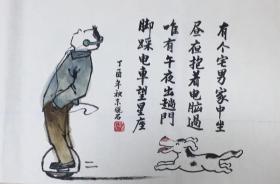 有个宅男家中坐
昼夜抱着电脑过
唯有午夜出趟门
脚踩电车望星座
丁酉年秋